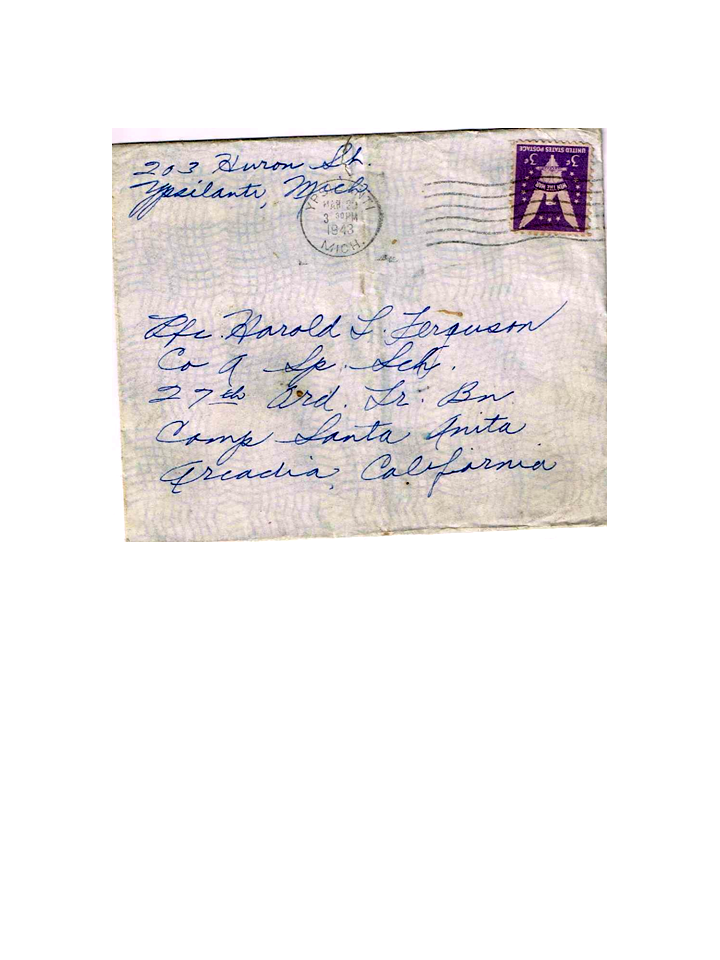 203 Huron St.
Ypsilanti, Mich.
YPSILANTI
MAR
3 30 PM
1943
MICH.
UNITED STATES POSTAGE
3¢ 3¢
WIN THE WAR
Pfc. Harold L. Ferguson
Co A Sp. Sch.
27th Ord. Tr. Bn
Camp Santa Anita
Arcadia, California